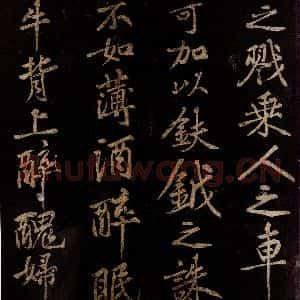 之戮乗人之車
可加以鈇鉞之誅
不如薄酒醉眠
牛背上醉醜婦
shufawang.CN